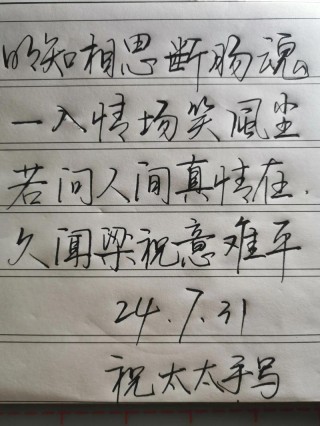 明知相思断肠魂
一入情场笑风尘
若问人间真情在.
久闻梁祝意难平
24.7.31
祝太太手写